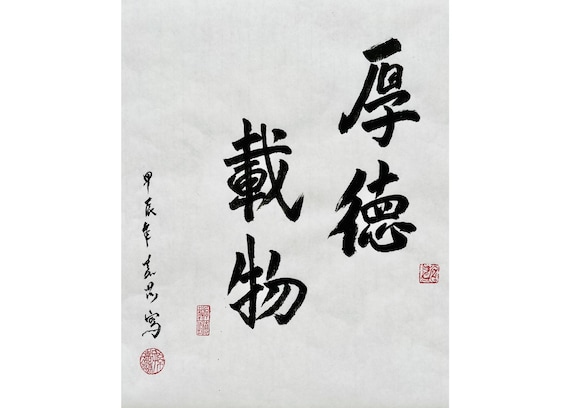 厚德
載物
甲辰年嘉思寫